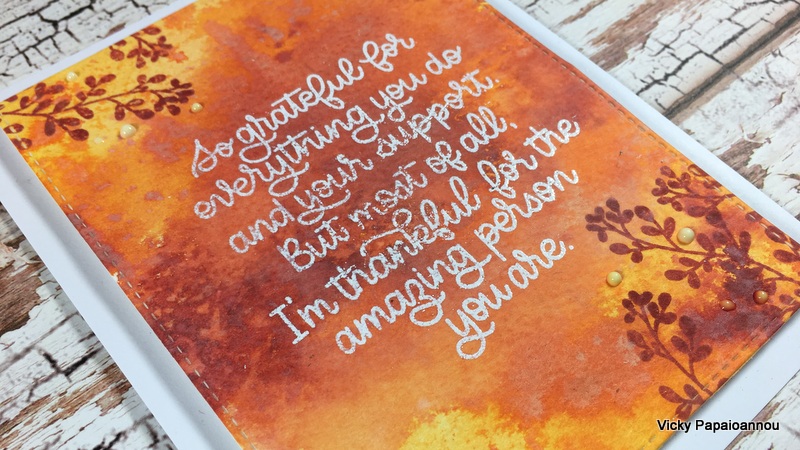 So grateful for
everything you do
and your support.
But most of all,
I'm thankful for the
amazing person
you are.
Vicky Papaioannou